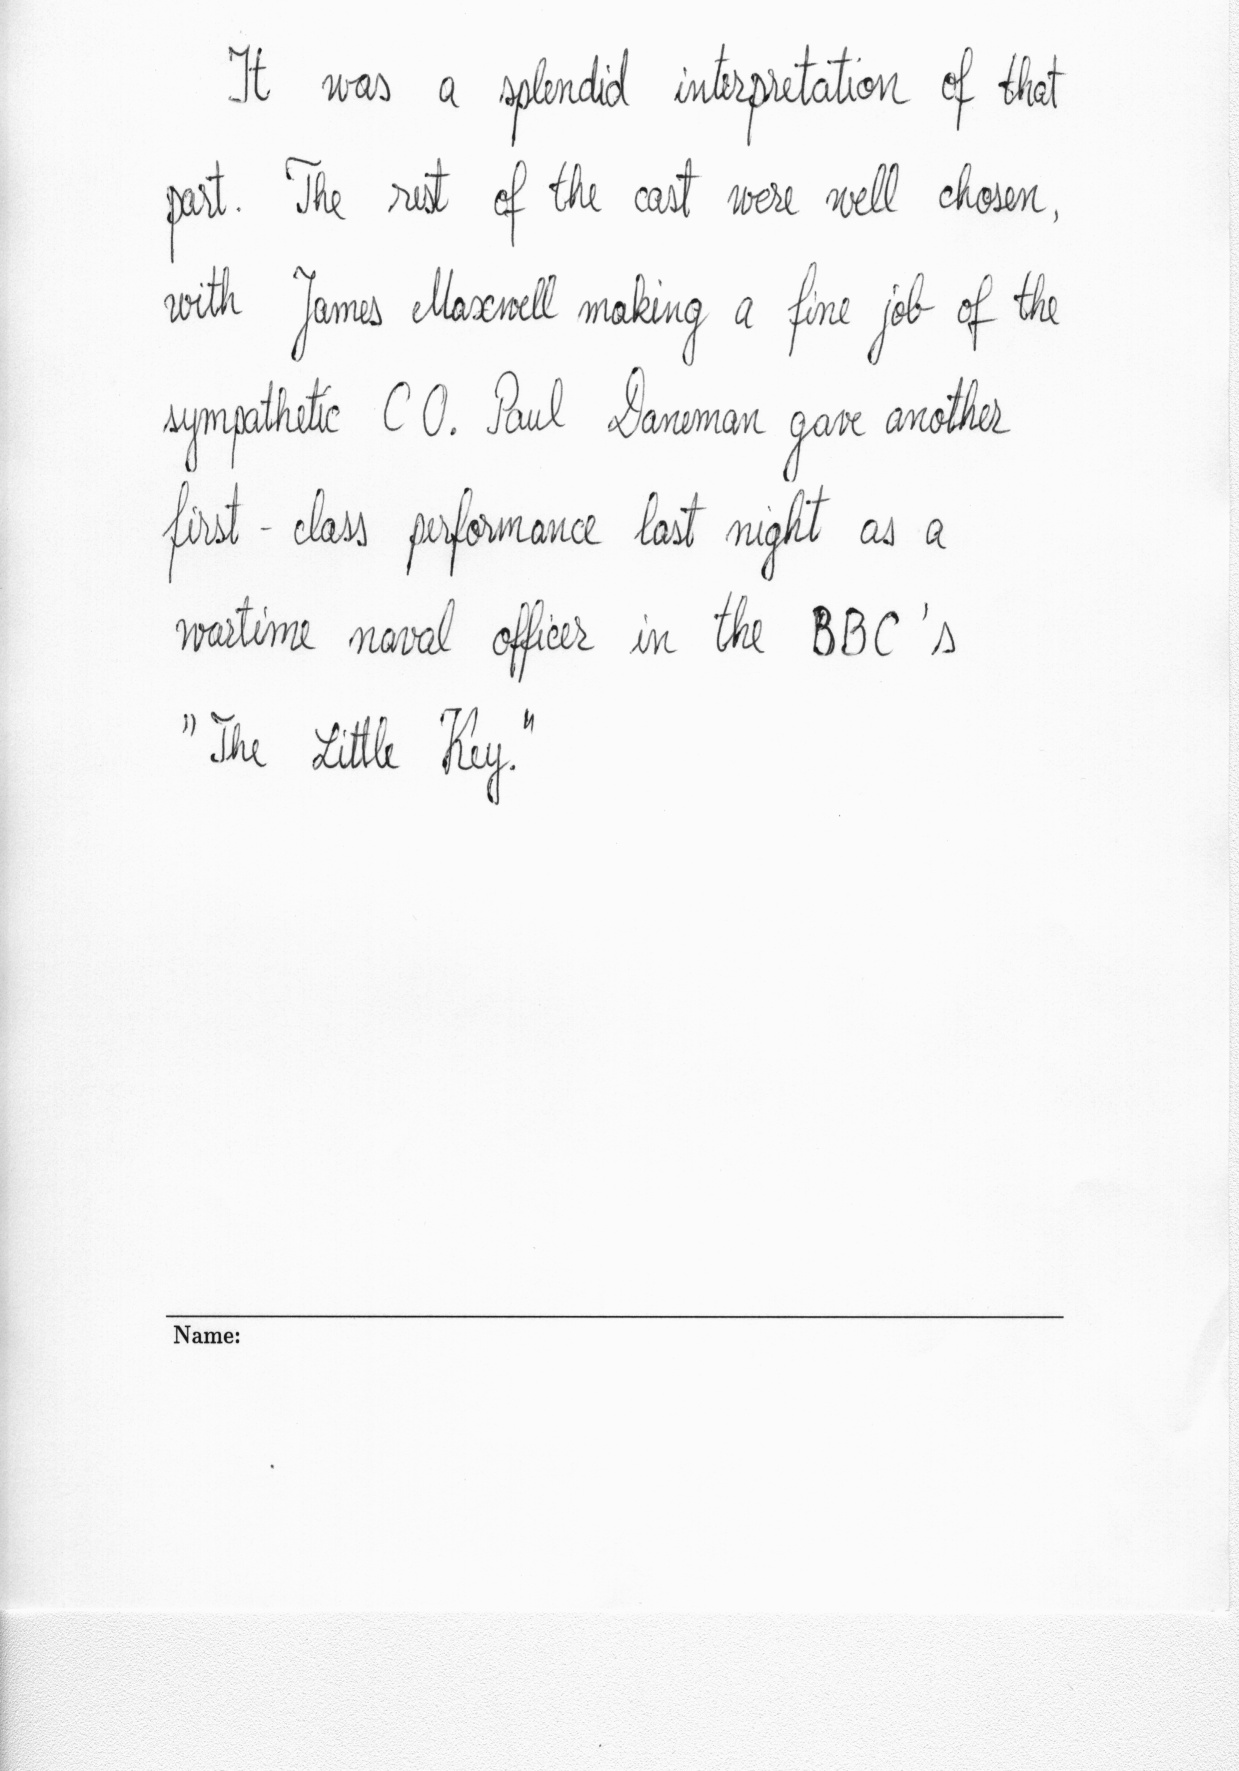 It was a splendid interpretation of that
part. The rest of the cast were well chosen,
with James Maxwell making a fine job of the
sympathetic CO. Paul Daneman gave another
first-class performance last night as a
wartime naval officer in the BBC's
"The Little Key."
Name: